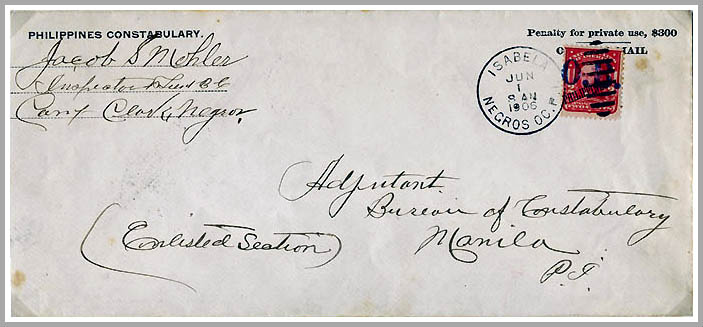 PHILIPPINES CONSTABULARY.
Jacob S Mohler
Inspector
Camp Clark, Negros,
Penalty for private use, $300
MAIL
ISABELA
JUN
1
8 AM
1906
NEGROS OC. P.I.
Adjutant
Bureau of Constabulary
Manila
P.I.
(Enlisted Section)